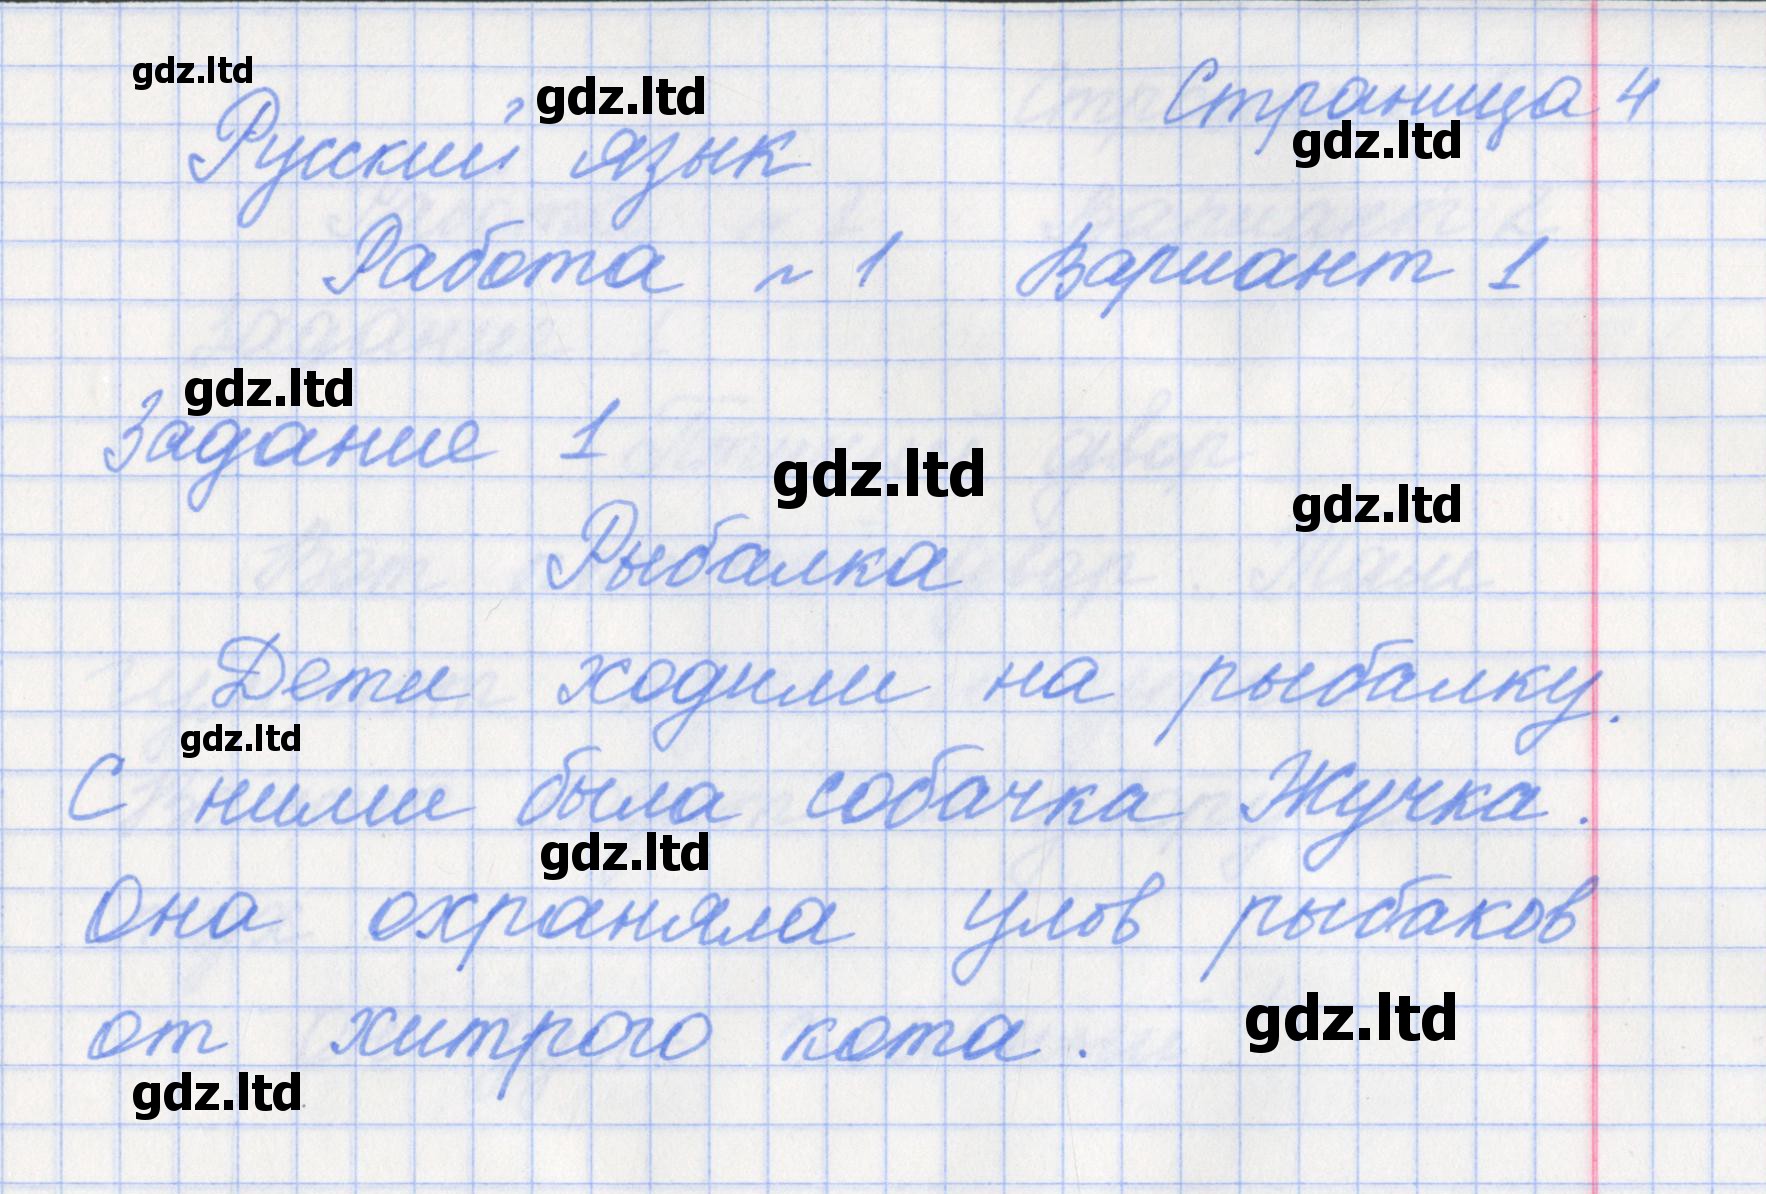 gdz.ltd
gdz.ltd
Страница 4
gdz.ltd
Русский язык
Работа № 1 Вариант 1
gdz.ltd
Задание 1
gdz.ltd
gdz.ltd
Рыбалка
Дети ходили на рыбалку.
gdz.ltd
С ними была собачка Жучка.
gdz.ltd
Она охраняла улов рыбаков
от хитрого кота.
gdz.ltd
gdz.ltd